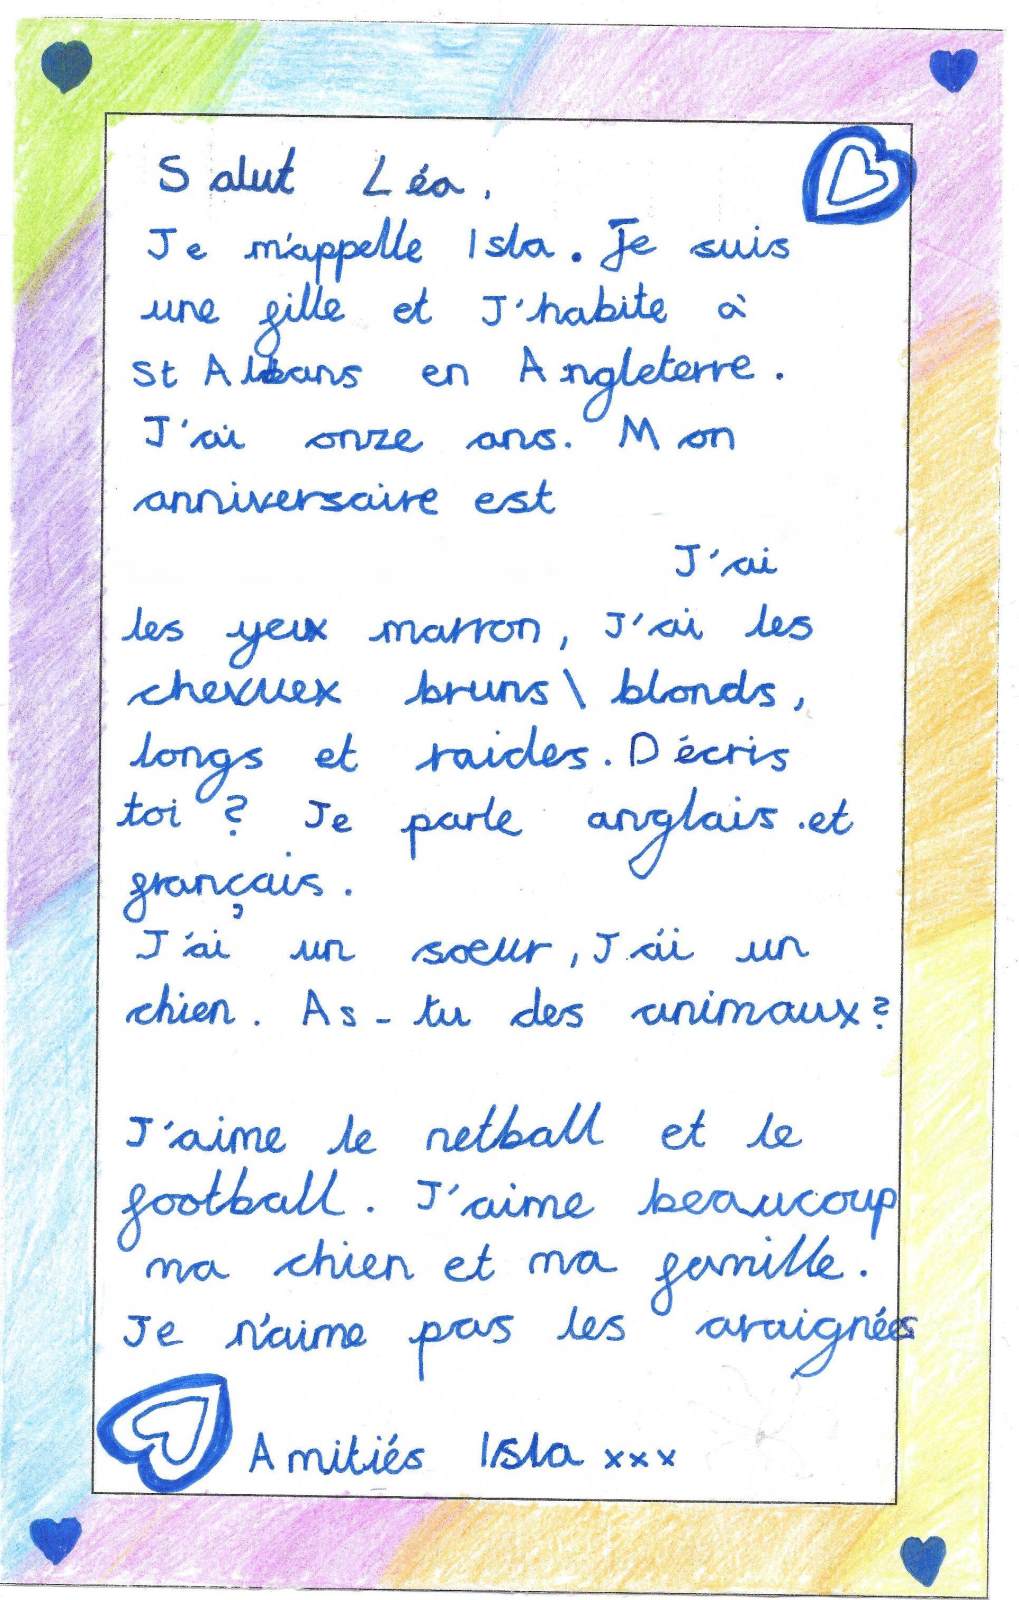 Salut Léa,
Je m'appelle Isla. Je suis
une fille et J'habite à
St Albans en Angleterre.
J'ai onze ans. Mon
anniversaire est
J'ai
les yeux marron, J'ai les
chevuex bruns\ blonds,
longs et raides. Décris
toi ? Je parle anglais .et
français.
J'ai un soeur, J'ai un
chien. As-tu des animaux?
J'aime le netball et le
football. J'aime beaucoup
ma chien et ma famille.
Je n'aime pas les araignées
Amitiés Isla xxx